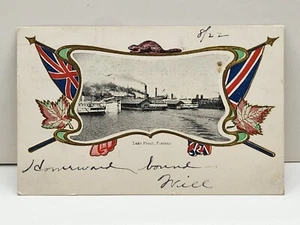 8/22
LAKE FRONT, TORONTO
Homeward bound
Will